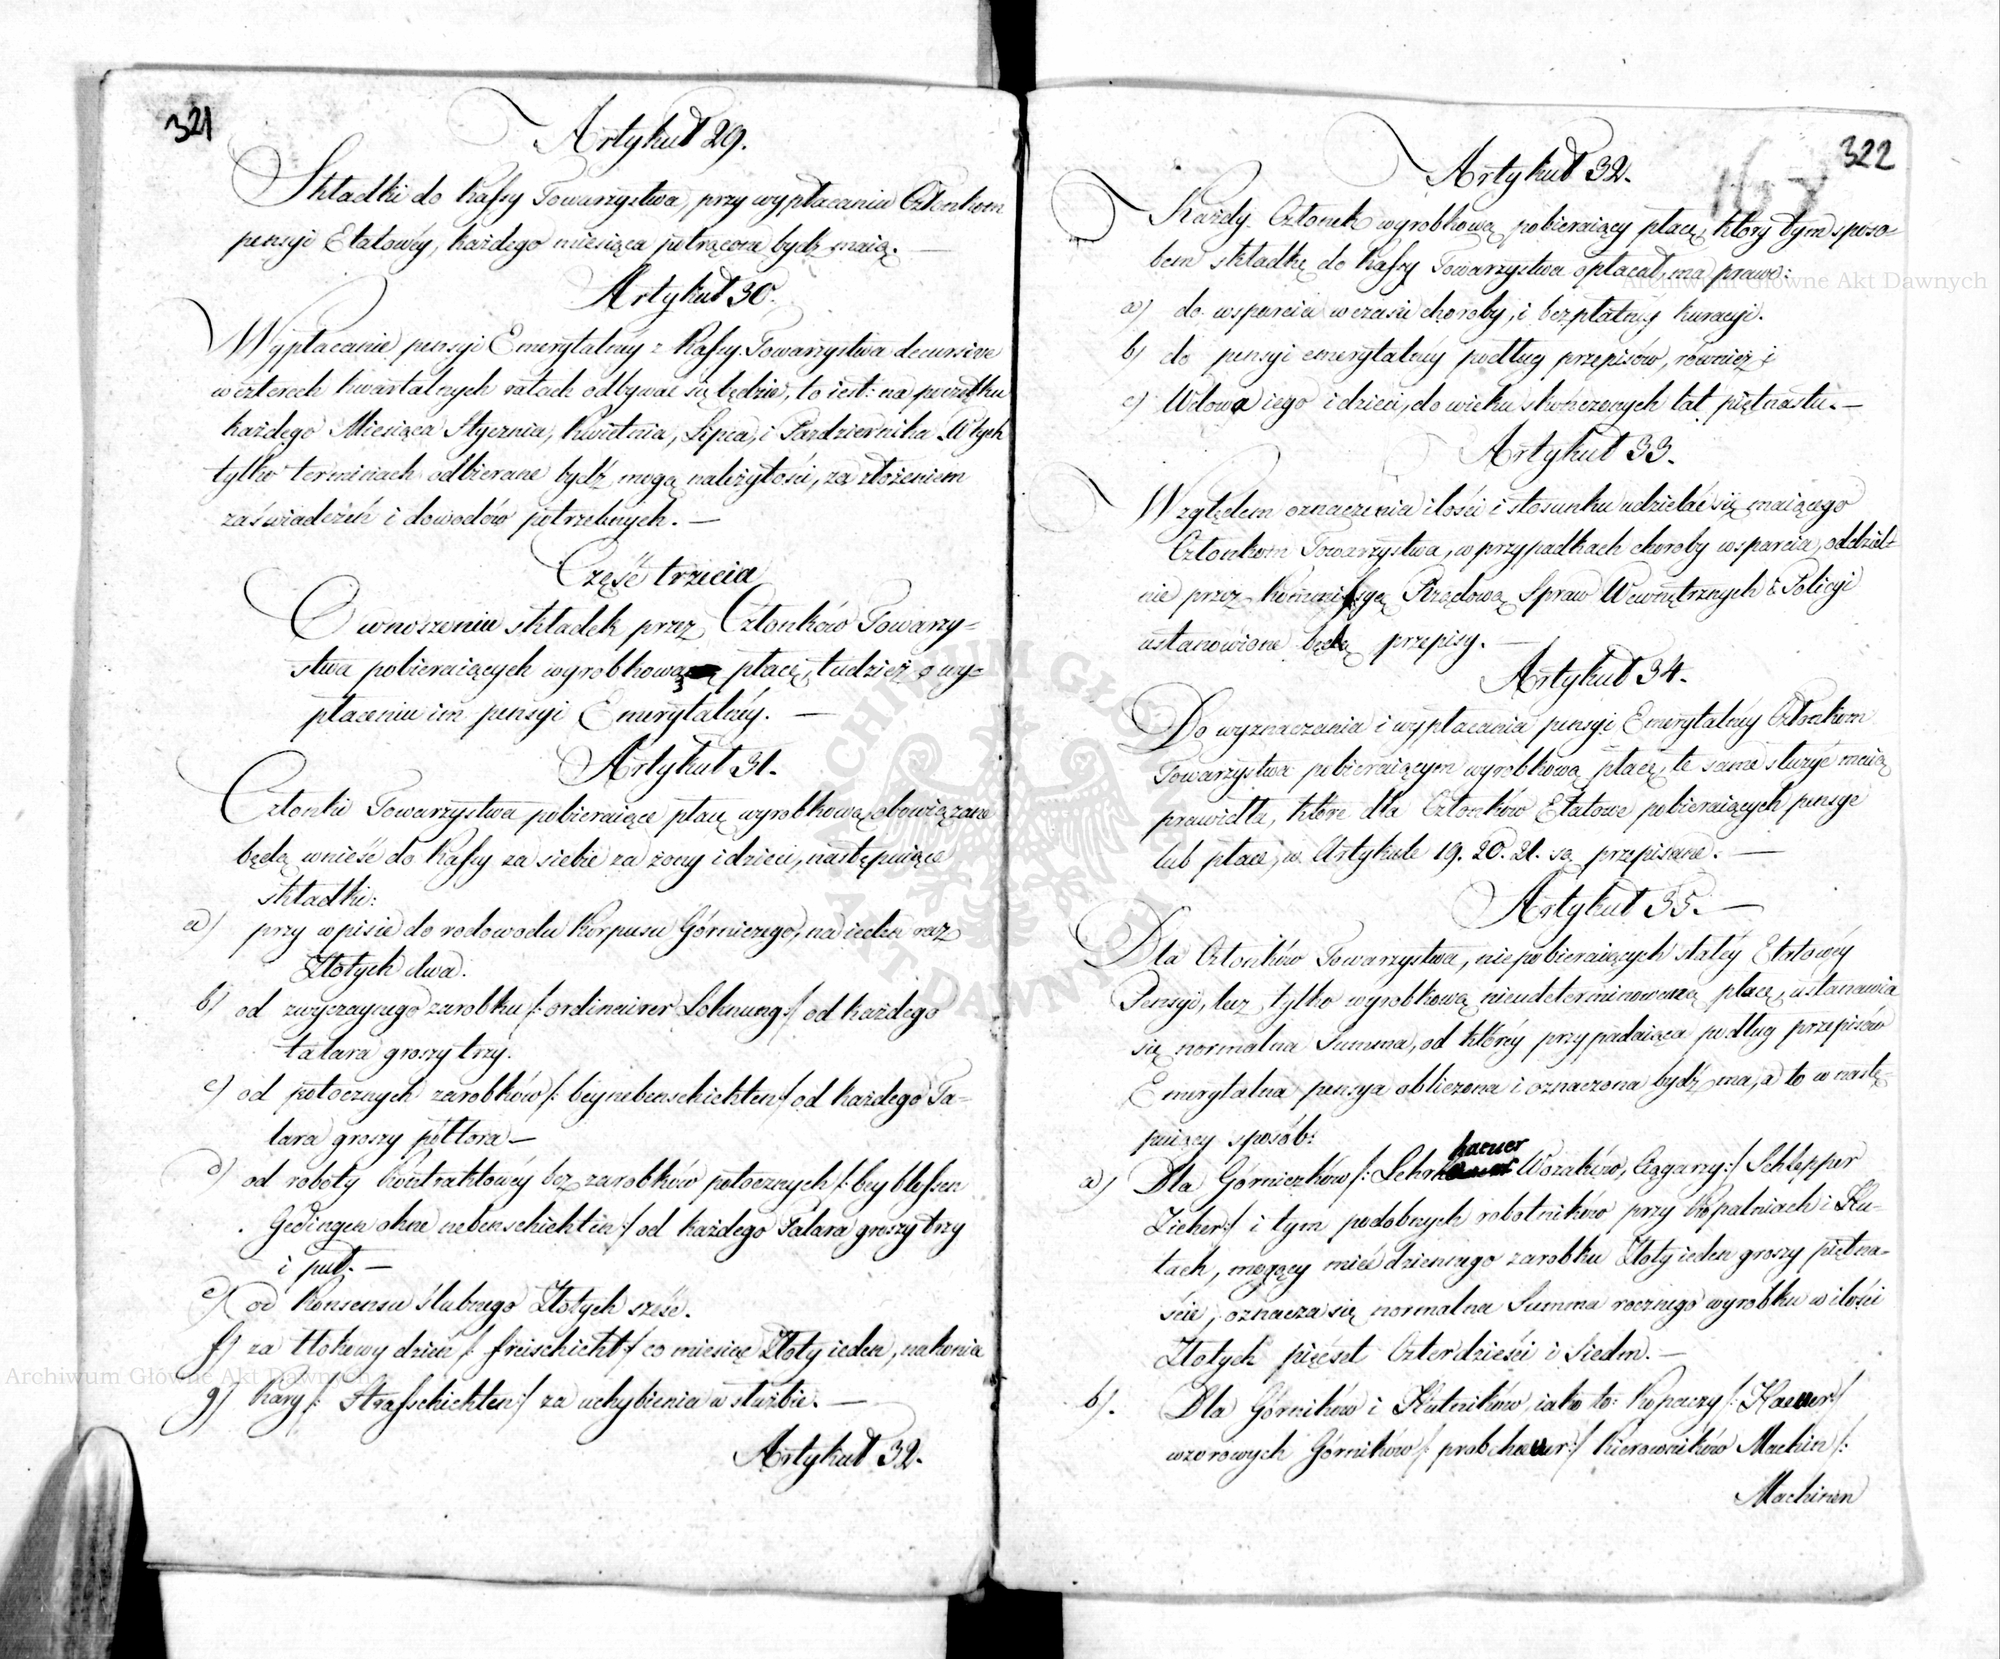 321
Artykuł 29.
Składki do Kassy Towarzystwa, przy wypłacaniu Członkom
pensyi Etatowéy, każdego miesiąca potrącone bydź maią. —
Artykuł 30.
Wypłacanie pensyi Emerytalney z Kassy Towarzystwa decursive
w czterech kwartalnych ratach odbywać się będzie, to iest: na początku
każdego Miesiąca Stycznia, Kwietnia, Lipca, i Pazdziernika. W tych
tylko terminach odbierane bydź mogą należytości, za złożeniem
zaświadczeń i dowodów potrzebnych. —
Część trzecia
O wnoszeniu składek przez Członków Towarzy=
stwa pobieraiących wyrobkową płacę, tudzież o wy=
płaceniu im pensyi Emerytalnéy. —
Artykuł 31.
Członki Towarzystwa pobieraiące płacę wyrobkową, obowiązane
będą wnieść do Kassy za siebie za żony i dzieci, następuiące
składki:
a) przy wpisie do rodowodu Korpusu Górniczego, na ieden raz
Złotych dwa.
b) od zwyczaynego zarobku /: ordinairer Lohnung :/ od każdego
talara groszy trzy.
c) od potocznych zarobków /: bey nebenschichten :/ od każdego Ta=
lara groszy półtora —
d) od roboty kontraktowéy bez zarobków potocznych /: bey blossen
Gedingen ohne nebenschichten :/ od każdego Talara groszy trzy
i puł. —
e) od Konsensu ślubnego Złotych sześć.
f) za tłokowy dzień /: freischicht :/ co miesiąc Złoty ieden, nakonia
g) Kary /: Strafschichten :/ za uchybienia w służbie. —
Artykuł 32.
322
167
Artykuł 32.
Każdy Członek wyrobkową pobieraiący płacę, który tym sposo=
bem składkę do Kassy Towarzystwa opłacał, ma prawo:
a) do wsparcia w czasie choroby, i bezpłatnéy kuracyi.
b) do pensyi emerytalnéy podług przepisów, równiéż i
c) Wdowa iego i dzieci, do wieku skończonych lat piętnastu. —
Artykuł 33.
Względem oznaczenia ilości i stosunku udzielać się maiącego
Członkom Towarzystwa, w przypadkach choroby wsparcia, oddziel=
nie przez Kommissyą Rządową Spraw Wewnętrznych i Policyi
ustanowione będą przepisy. —
Artykuł 34.
Do wyznaczania i wypłacania pensyi Emerytalnéy Członkom
Towarzystwa pobieraiącym wyrobkową płacę, te same służyć maią
prawidła, które dla Członków Etatowe pobieraiących pensye
lub płace, w Artykule 19. 20. 21. są przepisane. —
Artykuł 35. —
Dla Członków Towarzystwa, niepobieraiących stałéy Etatowéy
Pensyi, lecz tylko wyrobkową nieudeterminowaną płacę, ustanawia
się normalna Summa, od któréy przypadaiąca podług przepisów
Emerytalna pensya obliczona i oznaczona bydź ma, a to w nastę=
puiący sposób:
hauer
a) Dla Górniczków /: Lehr Wozaków, Ciągarzy :/ Schlepper
Zieher :/ i tym podobnych robotników przy Kopalniach i Hu=
tach, mogący mieć dziennego zarobku Złoty ieden groszy piętna=
ście, oznacza się normalna Summa rocznego wyrobku w ilości
Złotych pięćset Czterdzieści i Siedm. —
b). Dla Górników i Hutników, iako to: Kopaczy /: Hauer :/
wzorowych Górników /: probehauer :/ Kierowników Machin /:
Machinen
Archiwum Główne Akt Dawnych
Archiwum Główne Akt Dawnych
ARCHIWUM GŁÓWNE AKT DAWNYCH